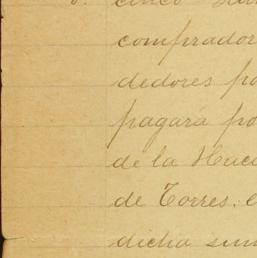 cinco
comprador
dedores po
pagará po
de la Hac
de Torres. c
dicha sum